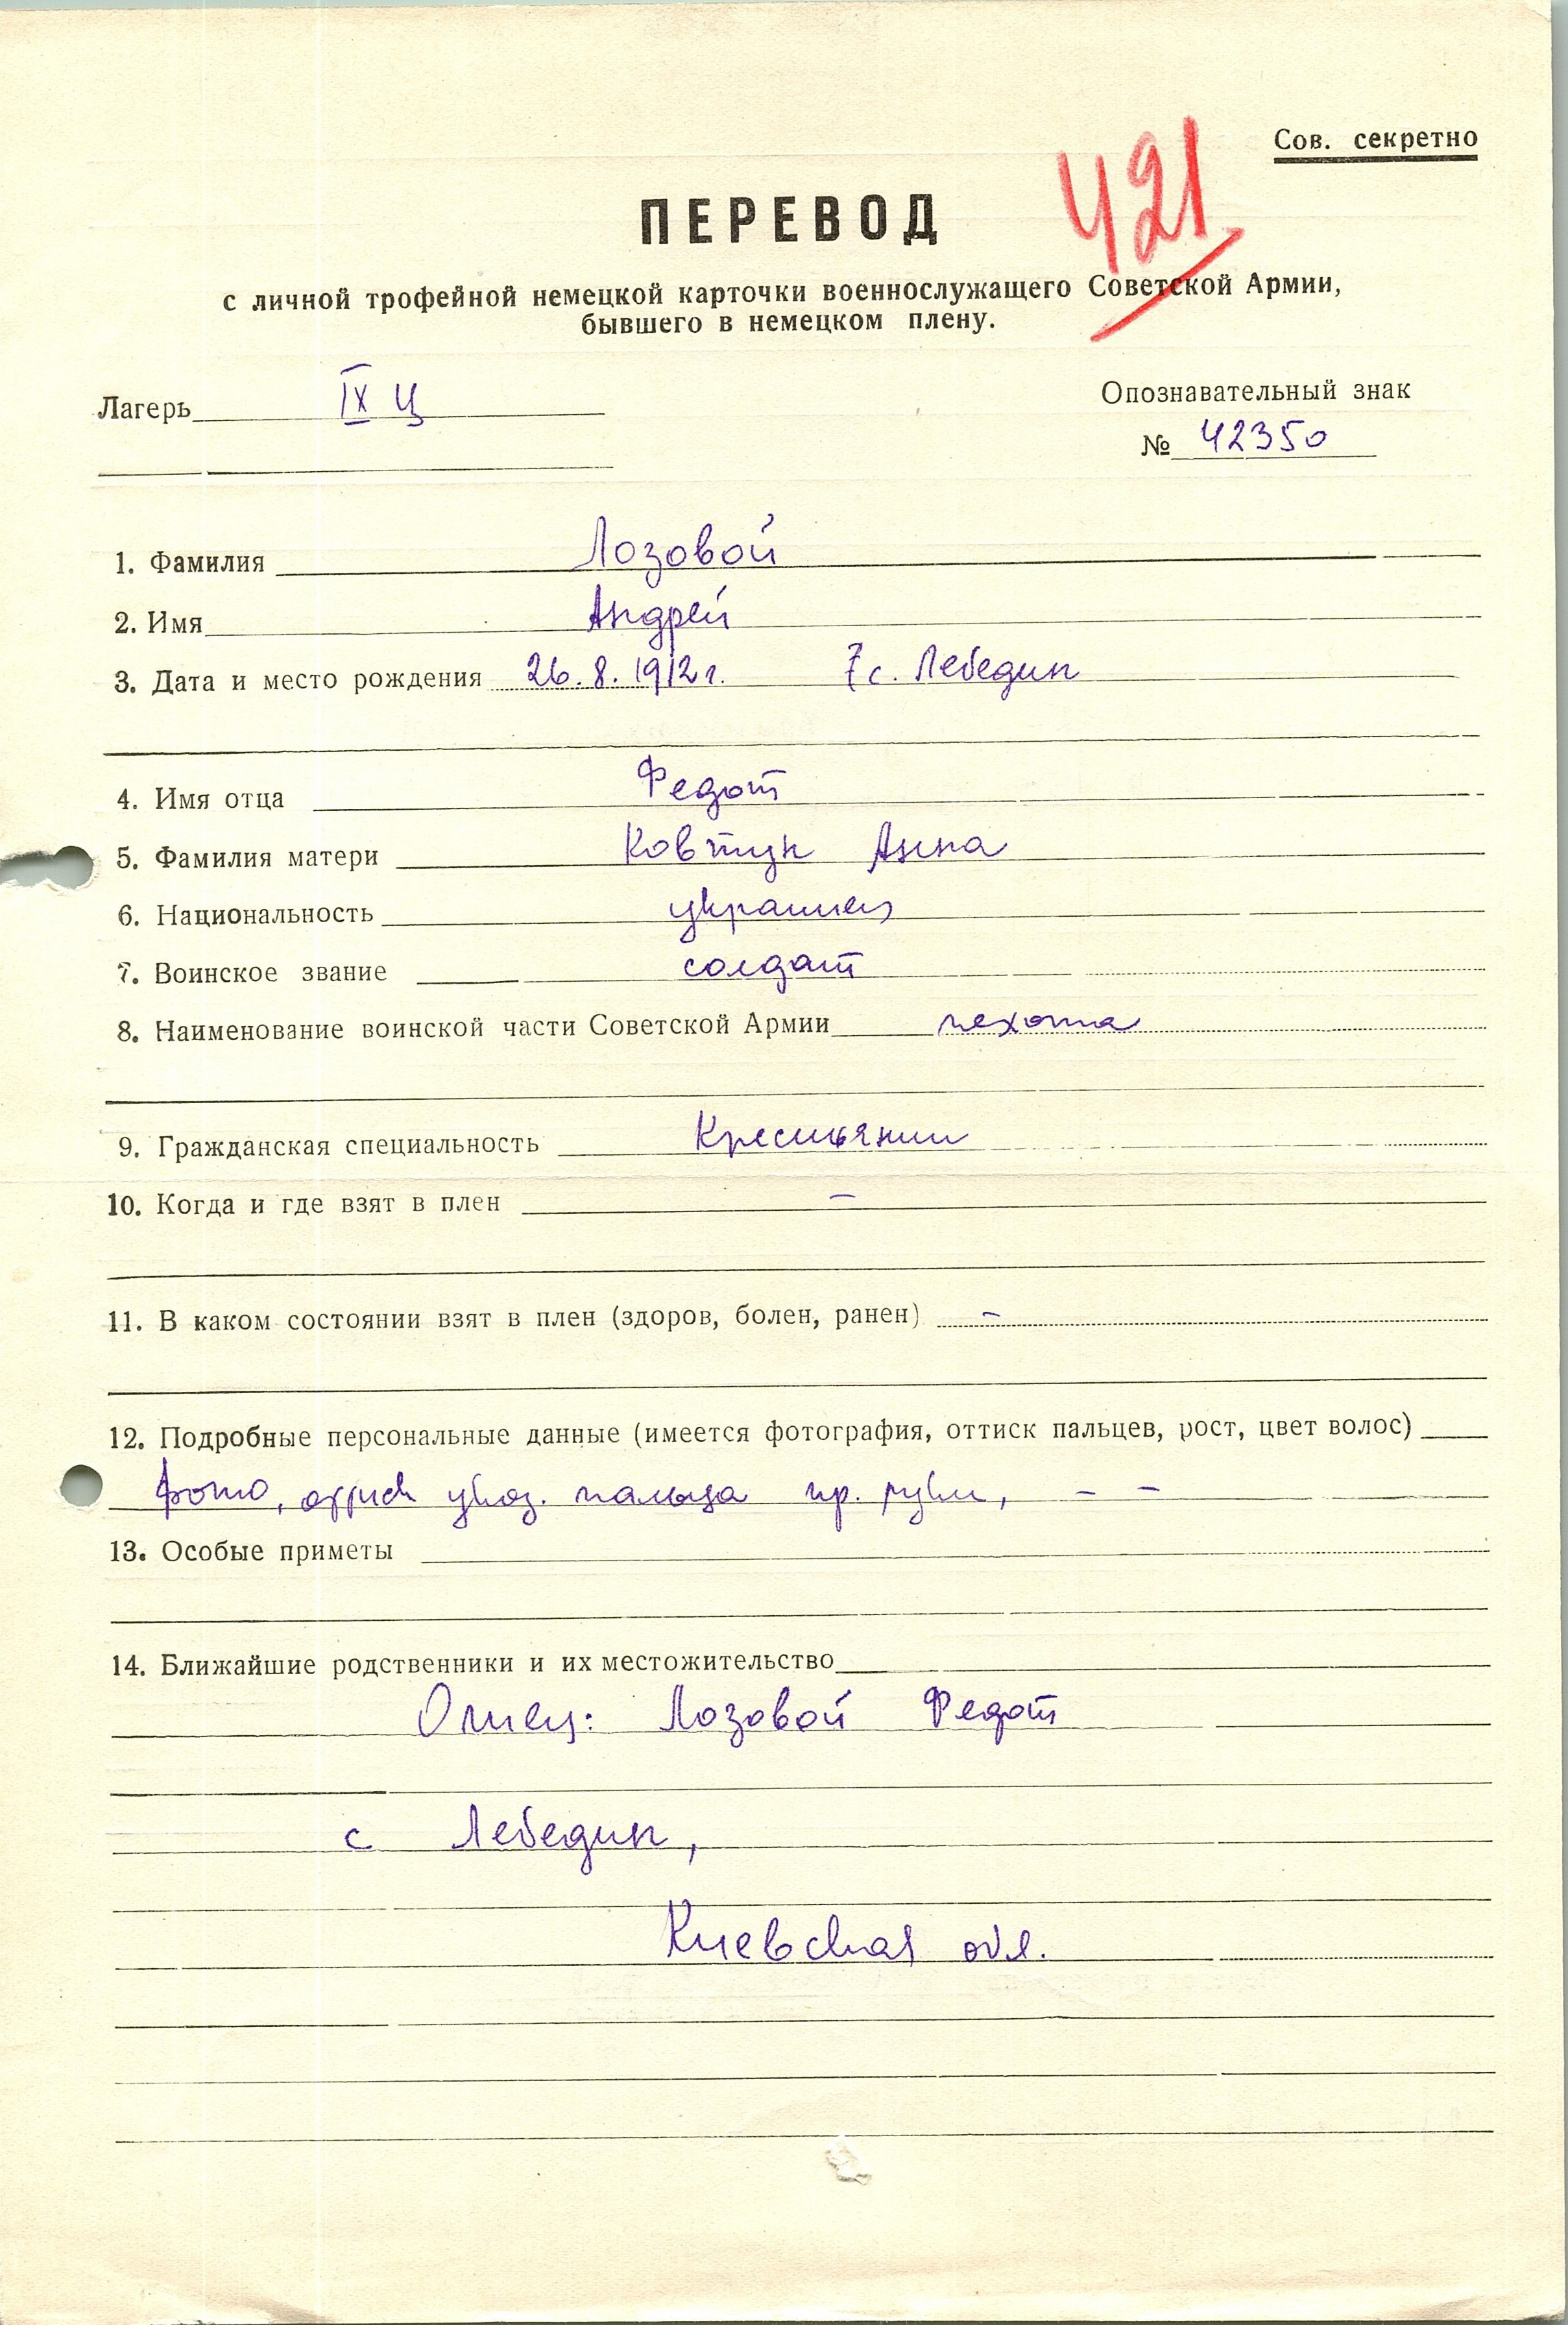 Сов. секретно
421
ПЕРЕВОД
с личной трофейной немецкой карточки военнослужащего Советской Армии,
бывшего в немецком плену.
Лагерь IX Ц
Опознавательный знак
№ 42350
1. Фамилия Лозовой
2. Имя Андрей
3. Дата и место рождения 26.8.1912г. с. Лебедин
4. Имя отца Федот
5. Фамилия матери Ковтун Анна
6. Национальность украинец
7. Воинское звание солдат
8. Наименование воинской части Советской Армии пехота
9. Гражданская специальность Крестьянин
10. Когда и где взят в плен –
11. В каком состоянии взят в плен (здоров, болен, ранен) –
12. Подробные персональные данные (имеется фотография, оттиск пальцев, рост, цвет волос)
фото, оттиск указ. пальца пр. руки, – –
13. Особые приметы
14. Ближайшие родственники и их местожительство
Отец: Лозовой Федот
с Лебедин,
Киевская обл.